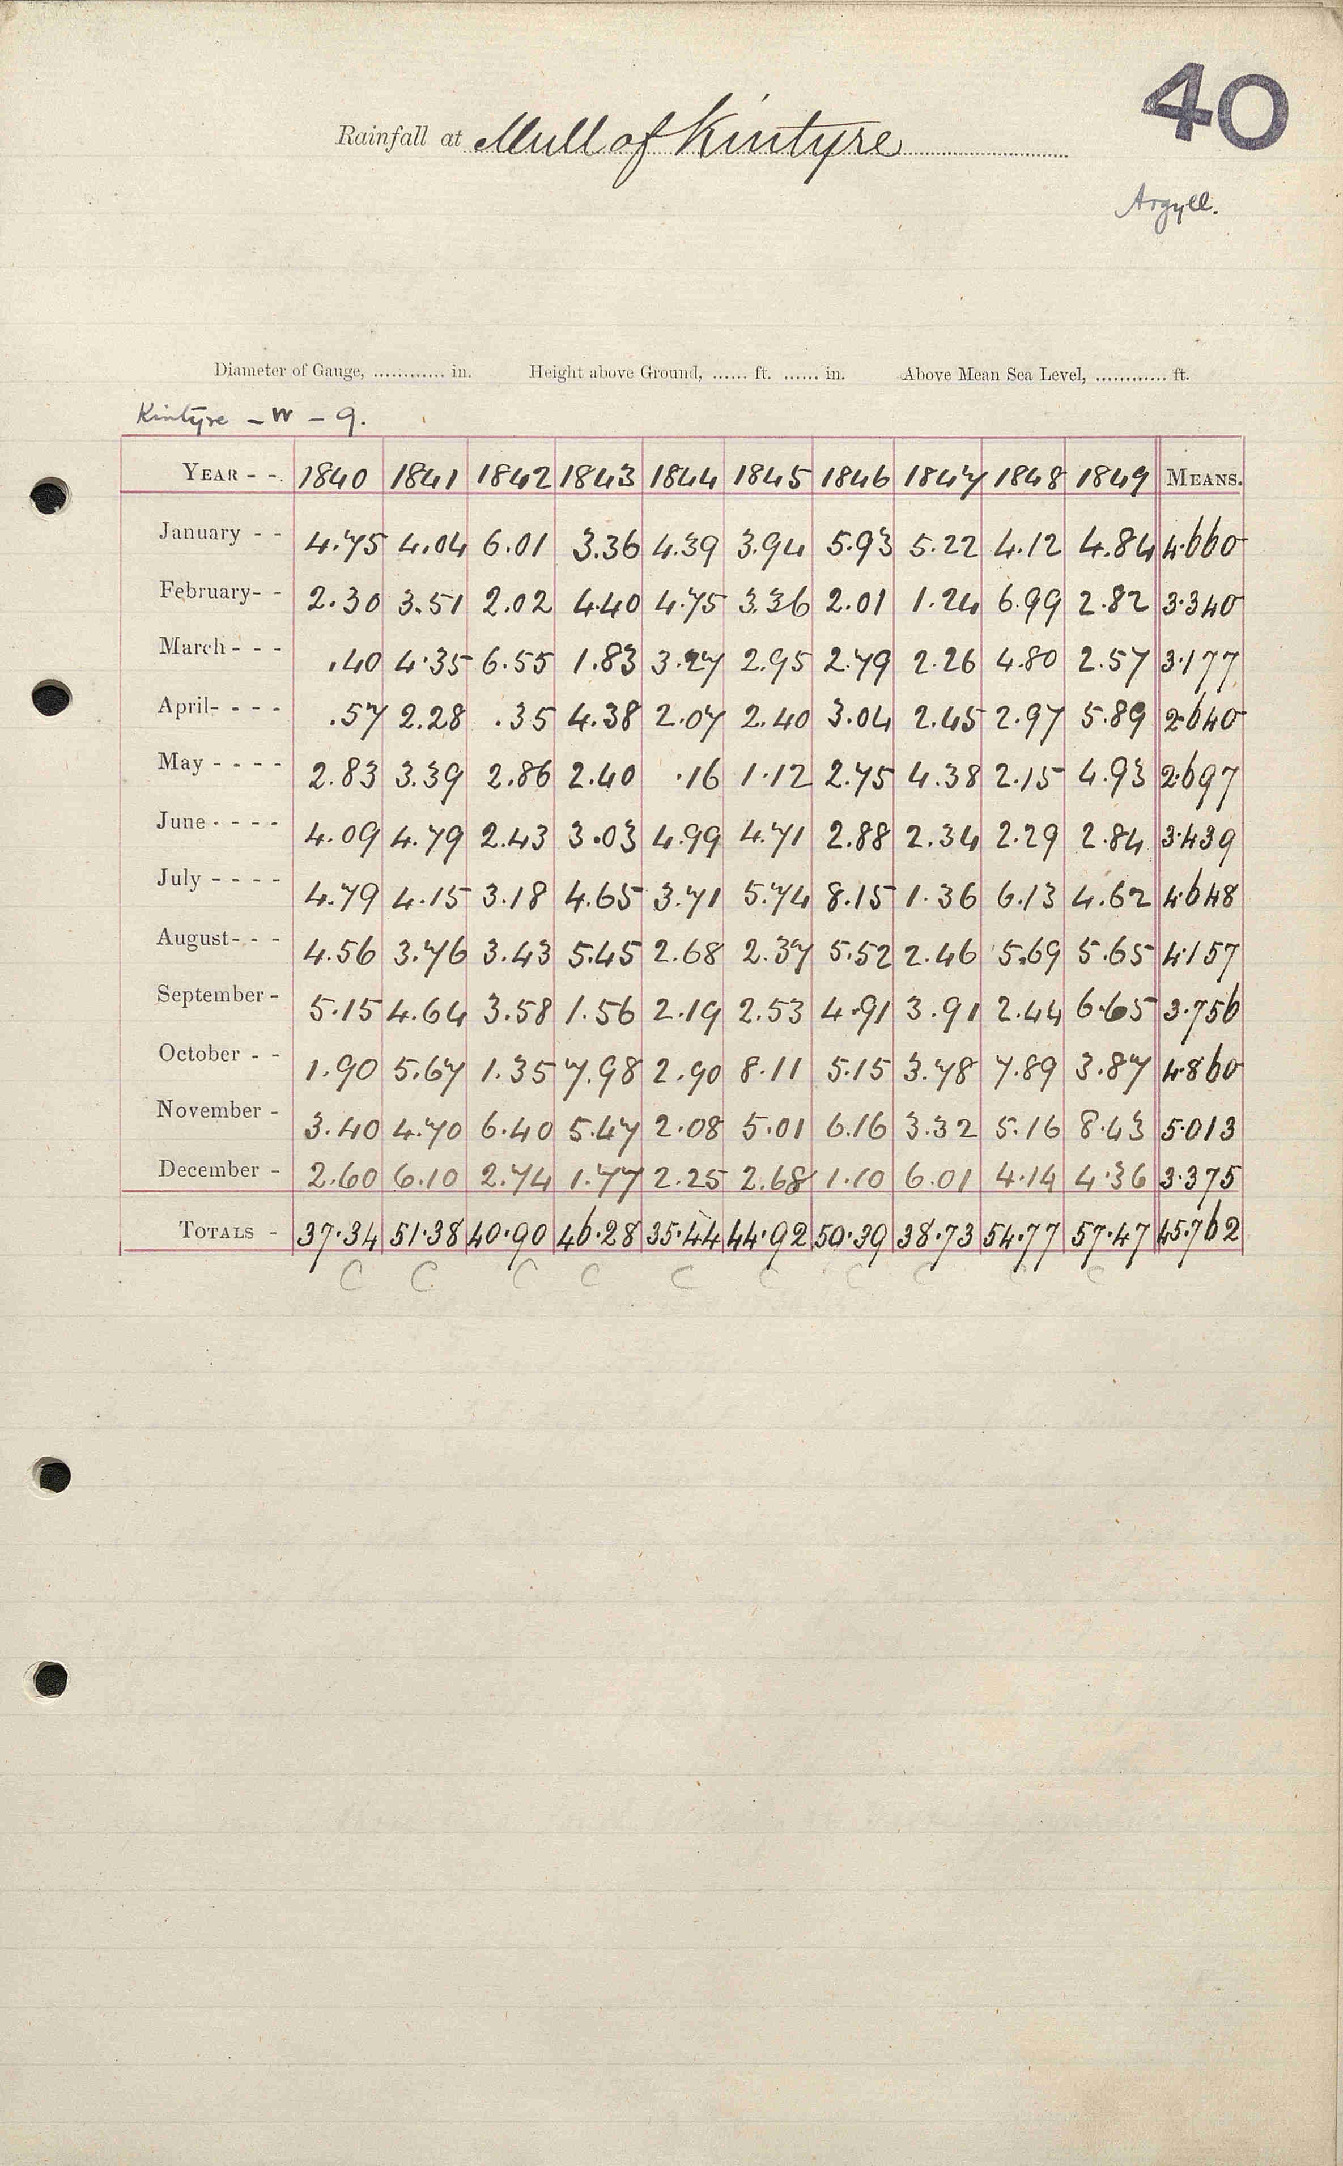 40
Rainfall at Mull of Kintyre
Argyll.
Diameter of Gauge, ............ in. Height above Ground, ...... ft. ...... in. Above Mean Sea Level, ............ ft.
Kintyre - W - 9.
YEAR - - 1840 1841 1842 1843 1844 1845 1846 1847 1848 1849 MEANS.
January - - 4.75 4.04 6.01 3.36 4.39 3.94 5.93 5.22 4.12 4.84 4.660
February- - 2.30 3.51 2.02 4.40 4.75 3.36 2.01 1.24 6.99 2.82 3.340
March - - - .40 4.35 6.55 1.83 3.27 2.95 2.79 2.26 4.80 2.57 3.177
April- - - - .57 2.28 .35 4.38 2.07 2.40 3.04 2.45 2.97 5.89 2.640
May - - - - 2.83 3.39 2.86 2.40 .16 1.12 2.75 4.38 2.15 4.93 2.697
June - - - - 4.09 4.79 2.43 3.03 4.99 4.71 2.88 2.34 2.29 2.84 3.439
July - - - - 4.79 4.15 3.18 4.65 3.71 5.74 8.15 1.36 6.13 4.62 4.648
August- - - 4.56 3.76 3.43 5.45 2.68 2.37 5.52 2.46 5.69 5.65 4.157
September - 5.15 4.64 3.58 1.56 2.19 2.53 4.91 3.91 2.44 6.65 3.756
October - - 1.90 5.67 1.35 7.98 2.90 8.11 5.15 3.78 7.89 3.87 4.860
November - 3.40 4.70 6.40 5.47 2.08 5.01 6.16 3.32 5.16 8.43 5.013
December - 2.60 6.10 2.74 1.77 2.25 2.68 1.10 6.01 4.14 4.36 3.375
TOTALS - 37.34 51.38 40.90 46.28 35.44 44.92 50.39 38.73 54.77 57.47 45.762
C C C C C C C C C C